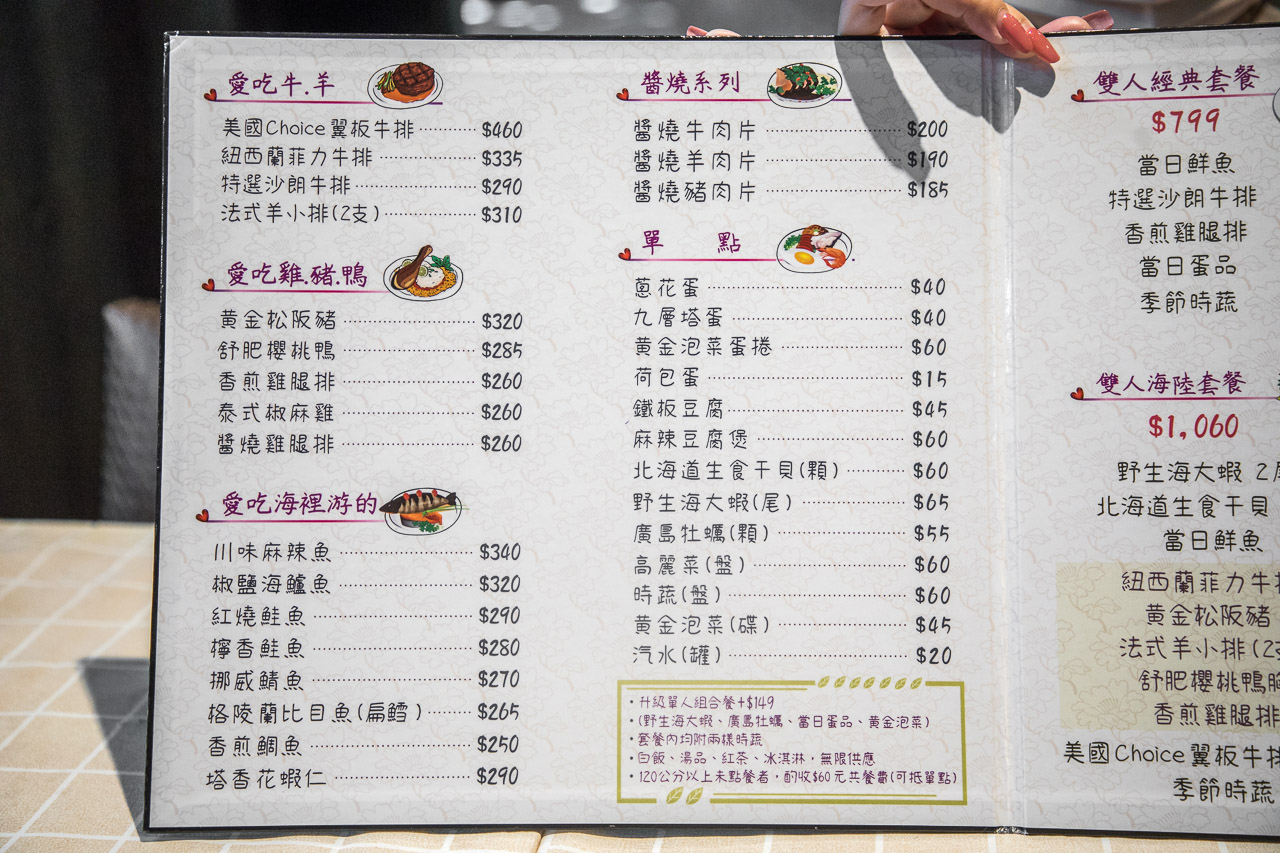 愛吃牛.羊
美國Choice翼板牛排 $460
紐西蘭菲力牛排 $335
特選沙朗牛排 $290
法式羊小排(2支) $310
愛吃雞.豬.鴨
黃金松阪豬 $320
舒肥櫻桃鴨 $285
香煎雞腿排 $260
泰式椒麻雞 $260
醬燒雞腿排 $260
愛吃海裡游的
川味麻辣魚 $340
椒鹽海鱸魚 $320
紅燒鮭魚 $290
檸香鮭魚 $280
挪威鯖魚 $270
格陵蘭比目魚(扁鱈) $265
香煎鯛魚 $250
塔香花蝦仁 $290
醬燒系列
醬燒牛肉片 $200
醬燒羊肉片 $190
醬燒豬肉片 $185
單 點
蔥花蛋 $40
九層塔蛋 $40
黃金泡菜蛋捲 $60
荷包蛋 $15
鐵板豆腐 $45
麻辣豆腐煲 $60
北海道生食干貝(顆) $60
野生海大蝦(尾) $65
廣島牡蠣(顆) $55
高麗菜(盤) $60
時蔬(盤) $60
黃金泡菜(碟) $45
汽水(罐) $20
・升級單人組合餐+$149
・(野生海大蝦、廣島牡蠣、當日蛋品、黃金泡菜)
・套餐內均附兩樣時蔬
・白飯、湯品、紅茶、冰淇淋，無限供應
・120公分以上未點餐者，酌收$60元共餐費(可抵單點)
雙人經典套餐
$799
當日鮮魚
特選沙朗牛排
香煎雞腿排
當日蛋品
季節時蔬
雙人海陸套餐
$1,060
野生海大蝦 2
北海道生食干貝
當日鮮魚
紐西蘭菲力牛
黃金松阪豬
法式羊小排(2
舒肥櫻桃鴨
香煎雞腿排
美國Choice翼板牛
季節時蔬